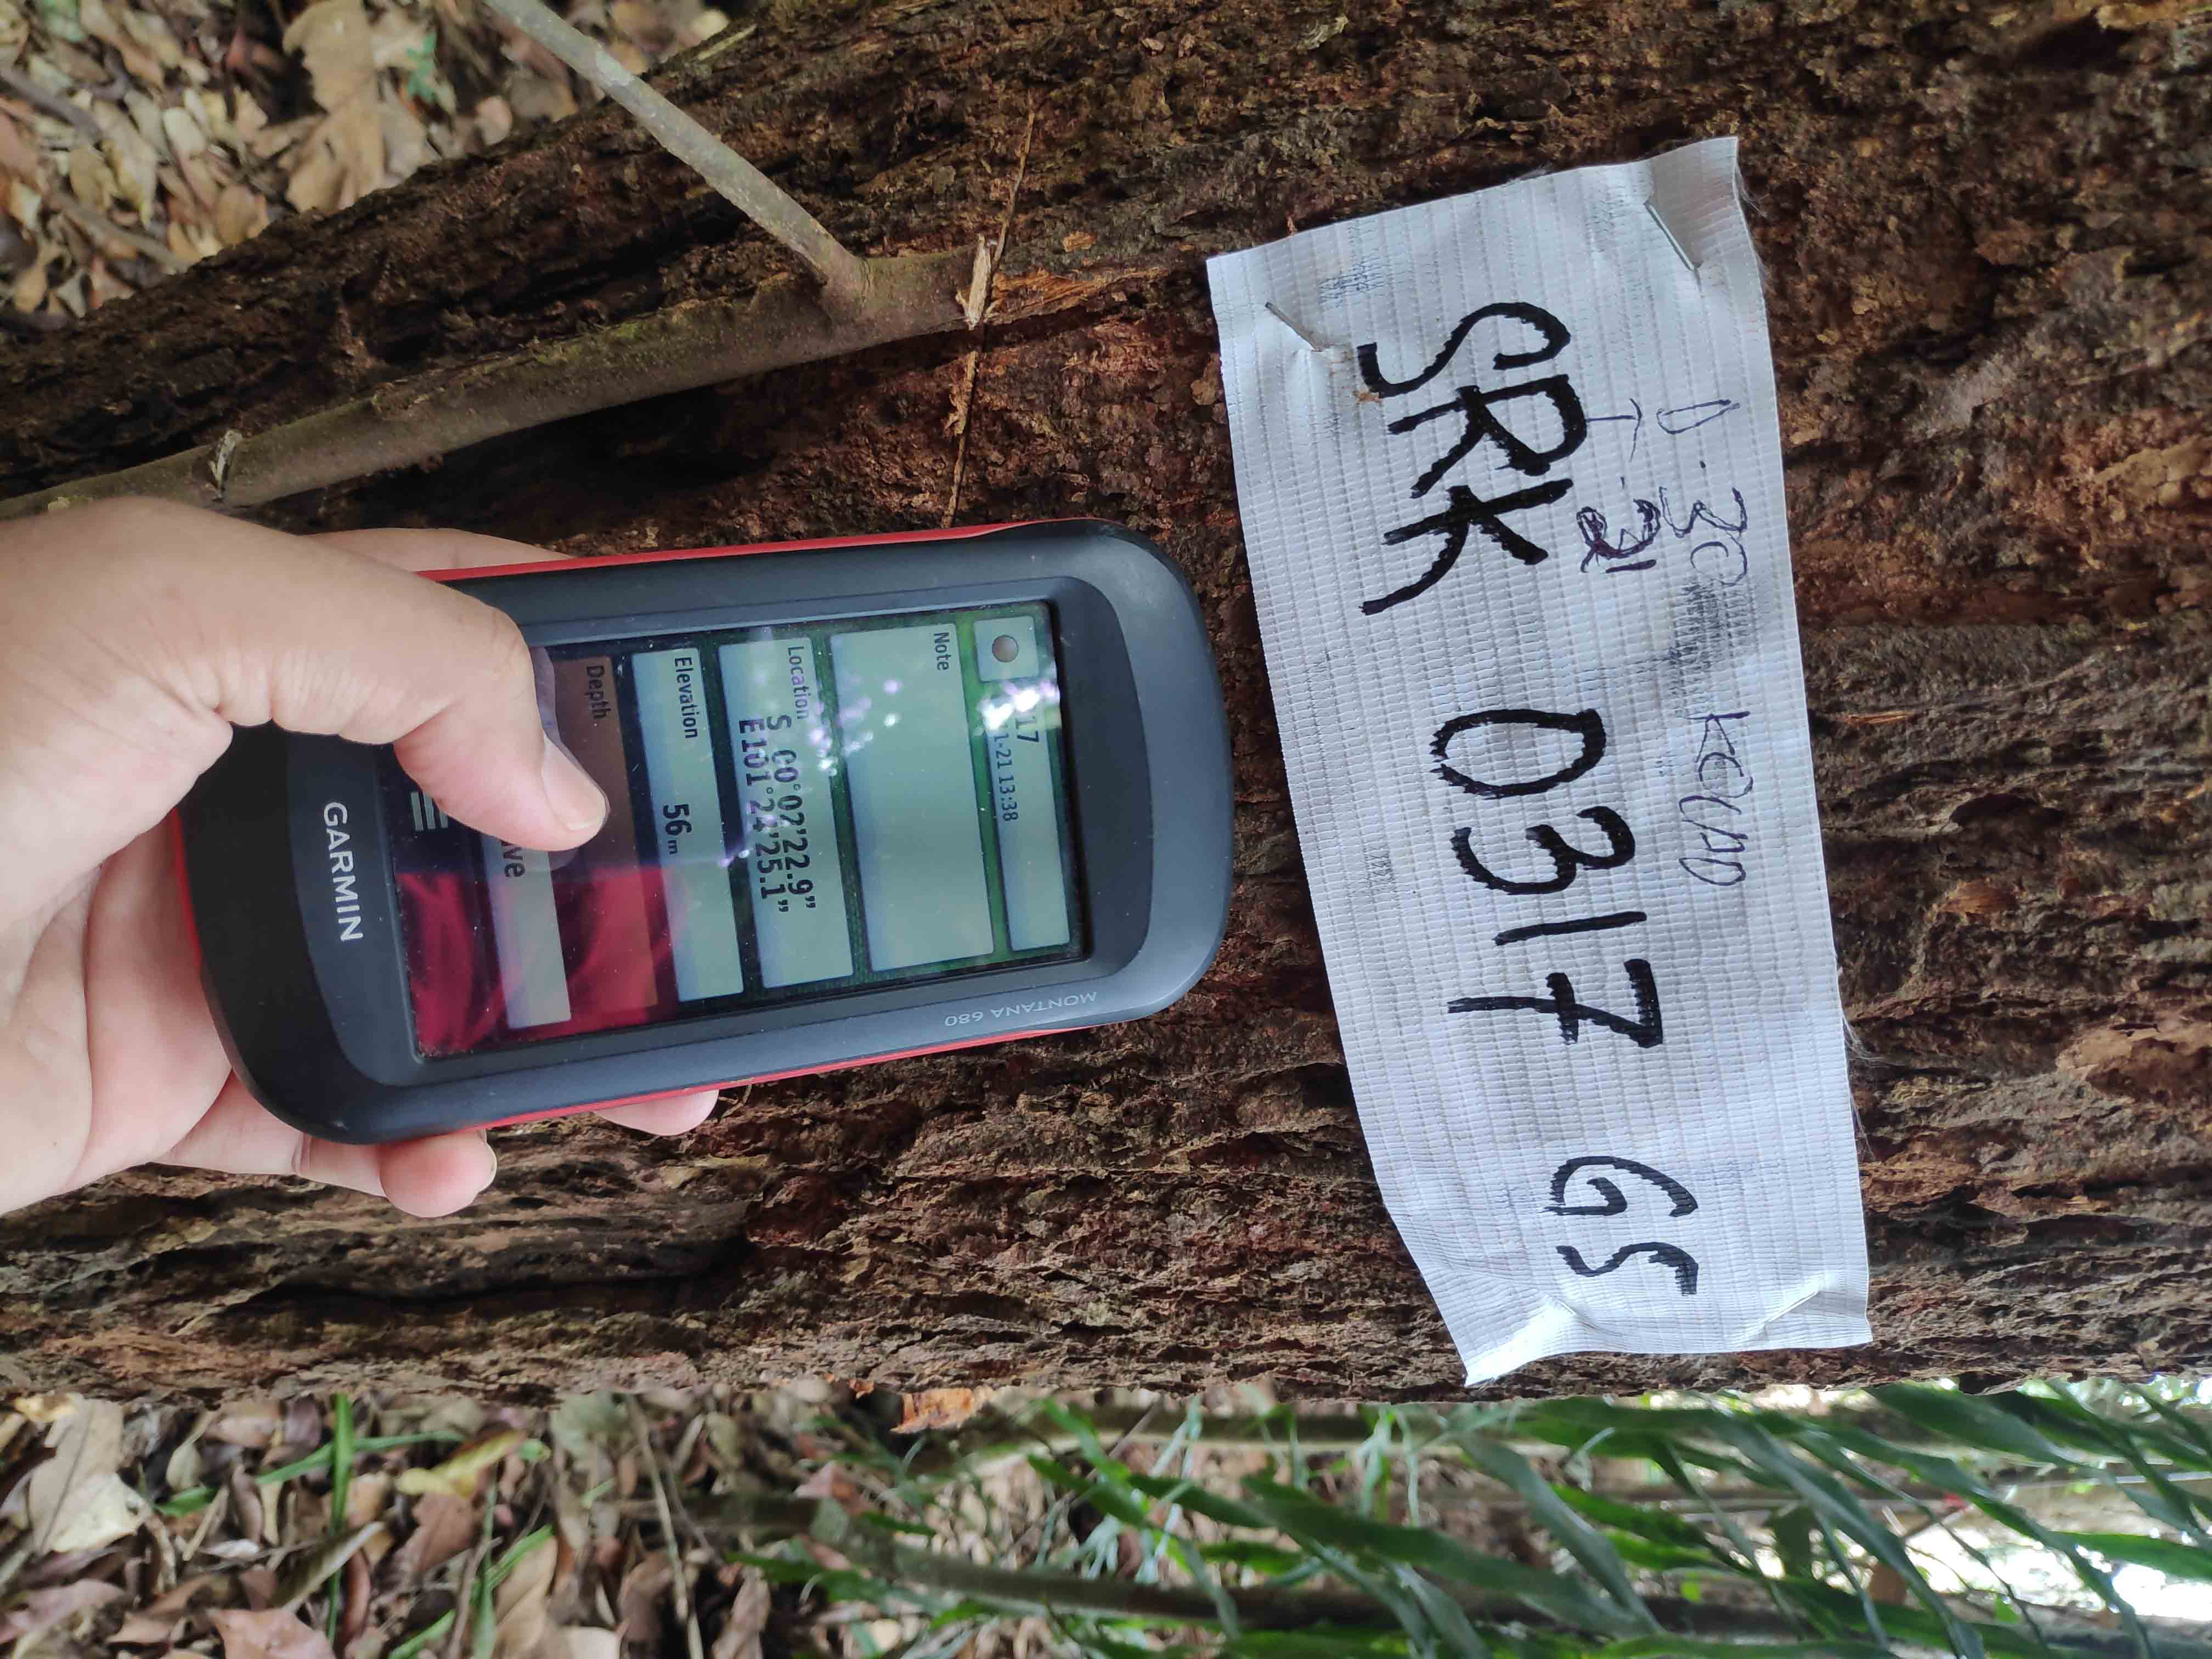 D - 30
T - 21
SRK 0317 GS
MONTANA 680
17
1-21 13:38
Note
Location
S 00°02'22.9"
E101°24'25.1"
Elevation
56 m
Depth
ve
GARMIN